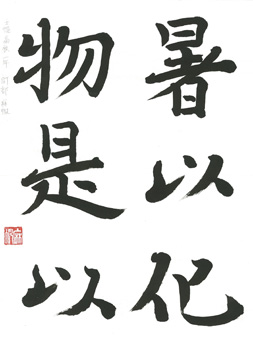 暑以化
物是以